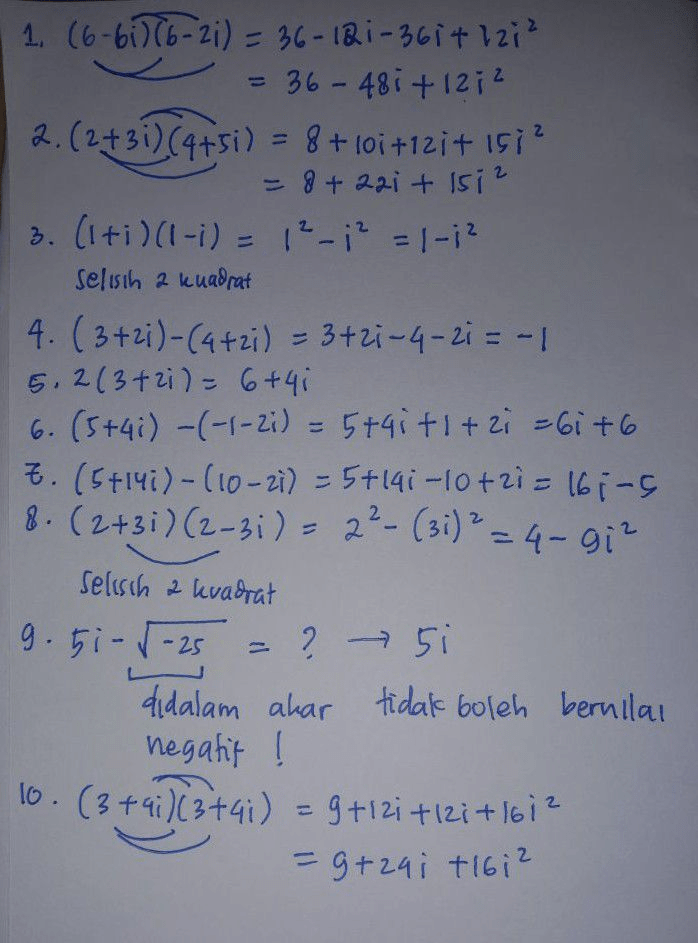 1. (6-6i)(6-2i) = 36-12i-36i+12i²
= 36-48i+12i²
2. (2+3i)(4+5i) = 8+10i+12i+15i²
= 8+22i+15i²
3. (1+i)(1-i) = 1²-i² = 1-i²
selisih 2 kuadrat
4. (3+2i)-(4+2i) = 3+2i-4-2i = -1
5. 2(3+2i) = 6+4i
6. (5+4i) -(-1-2i) = 5+4i+1+2i = 6i+6
7. (5+14i)-(10-2i) = 5+14i-10+2i = 16i-5
8. (2+3i)(2-3i) = 2²-(3i)² = 4-9i²
selisih 2 kuadrat
9. 5i-√-25 = ? → 5i
didalam akar tidak boleh bernilai
negatif !
10. (3+4i)(3+4i) = 9+12i+12i+16i²
= 9+24i+16i²